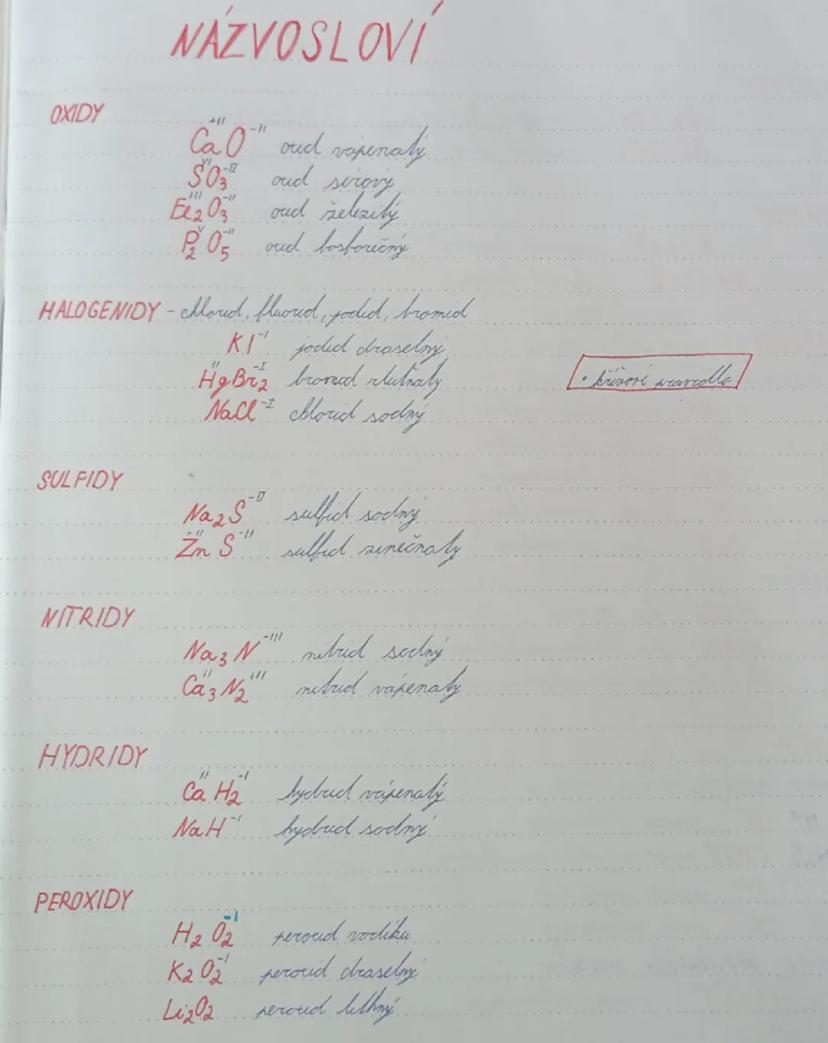 NÁZVOSLOVÍ
OXIDY
Ca^+II O^-II oxid vápenatý
S^VI O₃^-II oxid sírový
Fe₂^III O₃^-II oxid železitý
P₂^V O₅^-II oxid fosforečný
HALOGENIDY - chlorid, fluorid, jodid, bromid
KI^-I jodid draselný
Hg^II Br₂^-I bromid rtuťnatý
• křížové pravidlo
NaCl^-I chlorid sodný
SULFIDY
Na₂S^-II sulfid sodný
Zn^II S^-II sulfid zinečnatý
NITRIDY
Na₃N^-III nitrid sodný
Ca₃^II N₂^III nitrid vápenatý
HYDRIDY
Ca^II H₂^-I hydrid vápenatý
NaH^-I hydrid sodný
PEROXIDY
H₂O₂^-I peroxid vodíku
K₂O₂^-I peroxid draselný
Li₂O₂ peroxid lithný